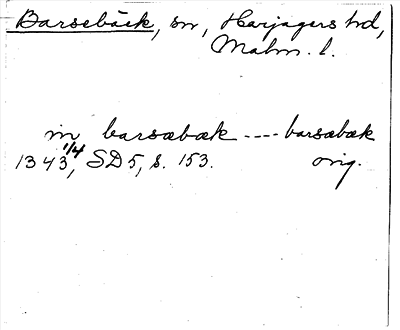 Barsebäck, sn, Harjagers hd,
Malm. l.
in barsæbæk ---- barsæbæk
1343 1/4, SD 5, s. 153. orig.